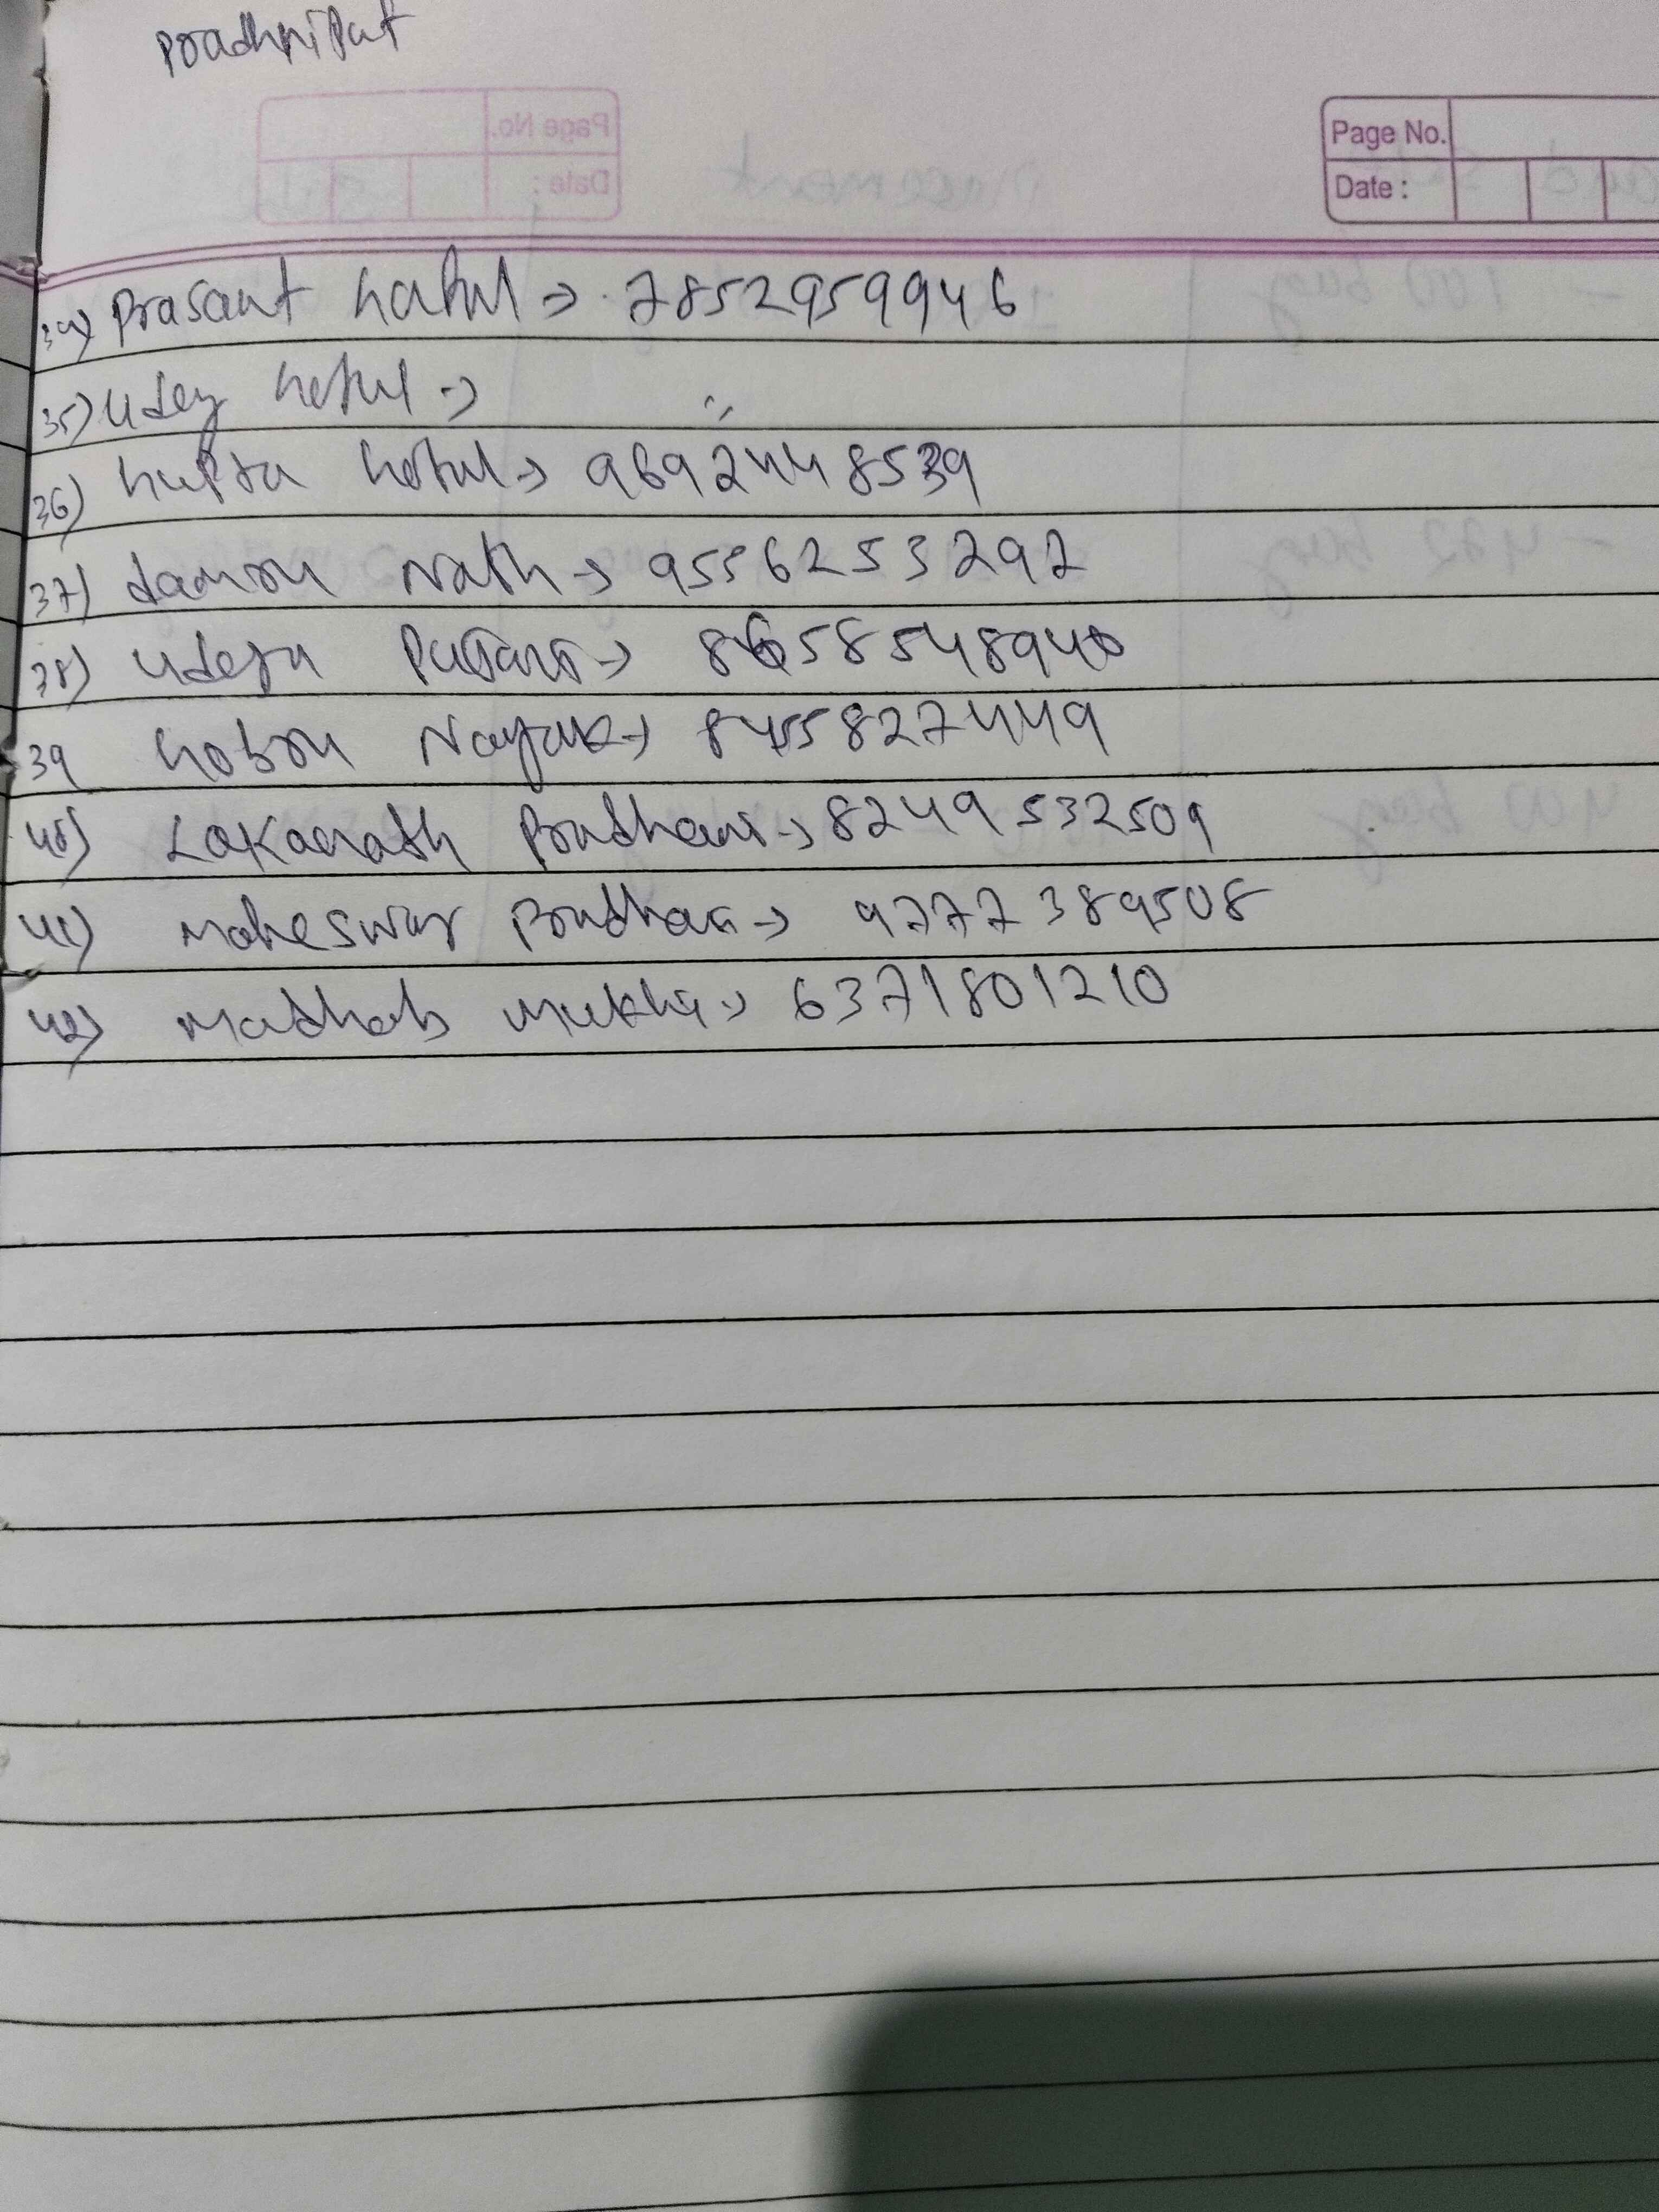 PradhniPat
Page No.
Date :
34) Prasant hatul => 7852959946
35) Udey hetul => "
36) hupta hotul => 9692448539
37) damru Nath => 9556253292
38) Udeya Pujari => 8658548940
39 Kobru Nayak => 8455827449
40) Lokanath Pradhan => 8249532509
41) Maheswar Pradhan => 9777389508
42) Madhab Mukhi => 6371801210